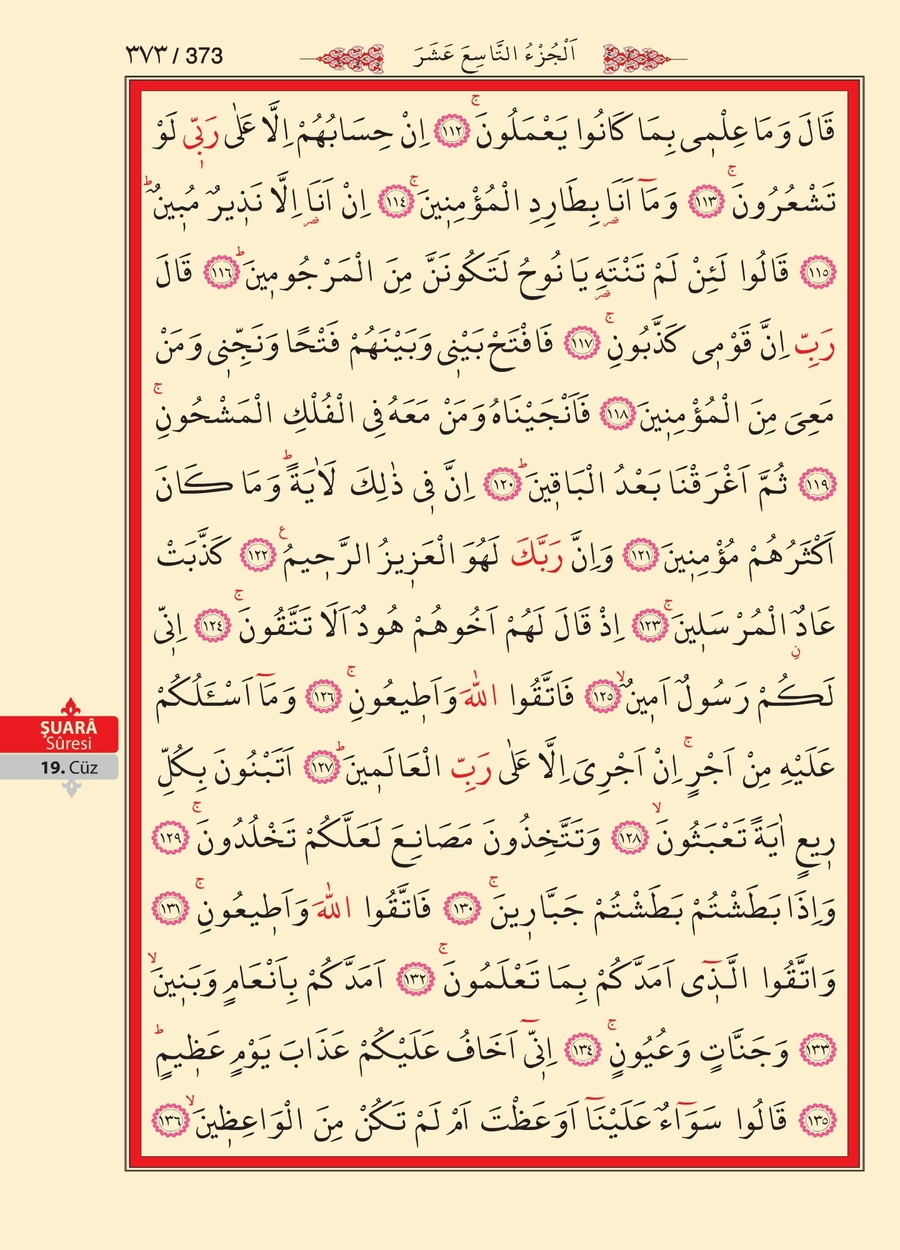 ٣٧٣ / 373
اَلْجُزْءُ التَّاسِعَ عَشَرَ
قَالَ وَمَا عِلْمٖى بِمَا كَانُوا يَعْمَلُونَۚ ﴿١١٢﴾ اِنْ حِسَابُهُمْ اِلَّا عَلٰى رَبّٖى لَوْ
تَشْعُرُونَۚ ﴿١١٣﴾ وَمَٓا اَنَا بِطَارِدِ الْمُؤْمِنٖينَۚ ﴿١١٤﴾ اِنْ اَنَا اِلَّا نَذٖيرٌ مُبٖينٌؕ
﴿١١٥﴾ قَالُوا لَئِنْ لَمْ تَنْتَهِ يَا نُوحُ لَتَكُونَنَّ مِنَ الْمَرْجُومٖينَؕ ﴿١١٦﴾ قَالَ
رَبِّ اِنَّ قَوْمٖى كَذَّبُونِۚ ﴿١١٧﴾ فَافْتَحْ بَيْنٖى وَبَيْنَهُمْ فَتْحًا وَنَجِّنٖى وَمَنْ
مَعِىَ مِنَ الْمُؤْمِنٖينَ ﴿١١٨﴾ فَاَنْجَيْنَاهُ وَمَنْ مَعَهُ فِى الْفُلْكِ الْمَشْحُونِۚ
﴿١١٩﴾ ثُمَّ اَغْرَقْنَا بَعْدُ الْبَاقٖينَؕ ﴿١٢٠﴾ اِنَّ فٖى ذٰلِكَ لَاٰيَةًؕ وَمَا كَانَ
اَكْثَرُهُمْ مُؤْمِنٖينَ ﴿١٢١﴾ وَاِنَّ رَبَّكَ لَهُوَ الْعَزٖيزُ الرَّحٖيمُࣖ ﴿١٢٢﴾ كَذَّبَتْ
عَادٌ الْمُرْسَلٖينَۚ ﴿١٢٣﴾ اِذْ قَالَ لَهُمْ اَخُوهُمْ هُودٌ اَلَا تَتَّقُونَۚ ﴿١٢٤﴾ اِنّٖى
لَكُمْ رَسُولٌ اَمٖينٌۙ ﴿١٢٥﴾ فَاتَّقُوا اللّٰهَ وَاَطٖيعُونِۚ ﴿١٢٦﴾ وَمَٓا اَسْـَٔلُكُمْ
عَلَيْهِ مِنْ اَجْرٍۚ اِنْ اَجْرِىَ اِلَّا عَلٰى رَبِّ الْعَالَمٖينَؕ ﴿١٢٧﴾ اَتَبْنُونَ بِكُلِّ
رٖيعٍ اٰيَةً تَعْبَثُونَۙ ﴿١٢٨﴾ وَتَتَّخِذُونَ مَصَانِعَ لَعَلَّكُمْ تَخْلُدُونَۚ ﴿١٢٩﴾
وَاِذَا بَطَشْتُمْ بَطَشْتُمْ جَبَّارٖينَۚ ﴿١٣٠﴾ فَاتَّقُوا اللّٰهَ وَاَطٖيعُونِۚ ﴿١٣١﴾
وَاتَّقُوا الَّذٖٓى اَمَدَّكُمْ بِمَا تَعْلَمُونَۚ ﴿١٣٢﴾ اَمَدَّكُمْ بِاَنْعَامٍ وَبَنٖينَۙ
﴿١٣٣﴾ وَجَنَّاتٍ وَعُيُونٍۚ ﴿١٣٤﴾ اِنّٖٓى اَخَافُ عَلَيْكُمْ عَذَابَ يَوْمٍ عَظٖيمٍؕ
﴿١٣٥﴾ قَالُوا سَوَٓاءٌ عَلَيْنَٓا اَوَعَظْتَ اَمْ لَمْ تَكُنْ مِنَ الْوَاعِظٖينَۙ ﴿١٣٦﴾
ŞUARÂ
Sûresi
19. Cüz